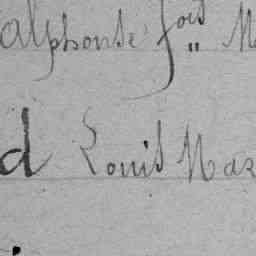 alphonse fois " M
d Louis Mar